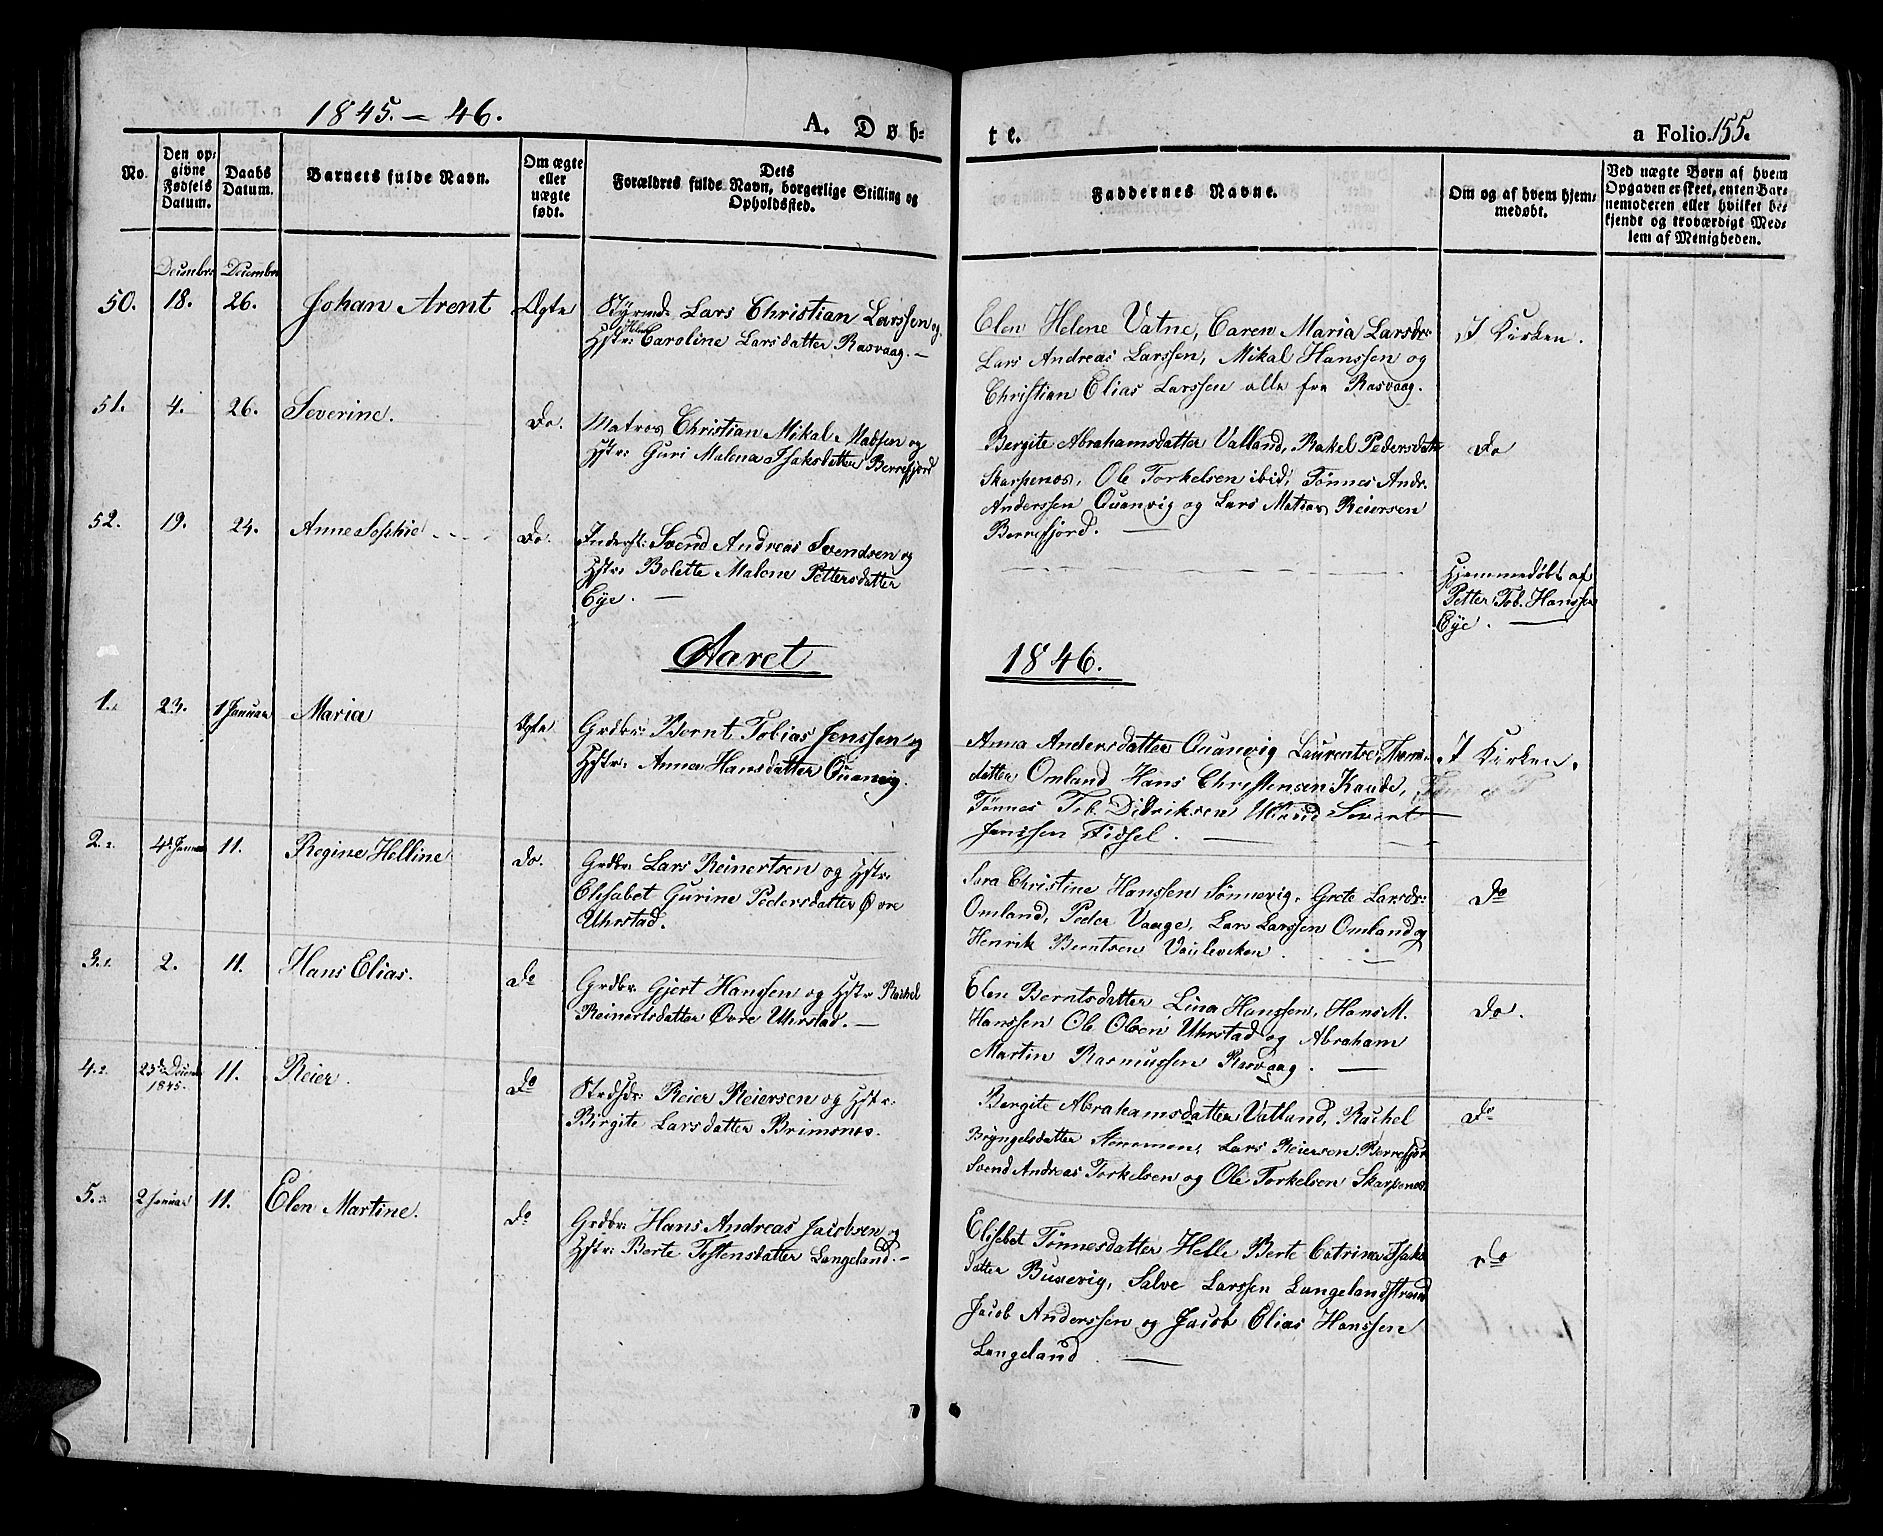 1845. – 46.
A. Døb-
te.
a Folio. 155.
No.
Den op-
givne
Fødsels
Datum.
Daabs
Datum.
Barnets fulde Navn.
Om ægte
eller
uægte
født.
Dets
Forældres fulde Navn, borgerlige Stilling og
Opholdssted.
Faddernes Navne.
Om og af hvem hjem-
medøbt.
Ved uægte Børn af hvem
Opgaven er skeet, enten Bar-
nemoderen eller hvilket be-
kjendt og troværdigt Med-
lem af Menigheden.
Decembr Decembr
50. 18. 26. Johan Arent Ægte
Styrmd: Lars Christian Larssen og
Hstr: Caroline Larsdatter Rasvaag. –
Elen Helene Vatne, Caren Maria Larsdr:
Lars Andreas Larssen, Mikal Hanssen og
Christian Elias Larssen alle fra Rasvaag.
I Kirken.
51. 4. 26. Severine. Do.
Matros Christian Mikal Madsen og
Hstr: Guri Malena Isaksdatter Berrefjord
Bergite Abrahamsdatter Vatland, Rakel Pedersdatter
Skarpenes, Ole Torkelsen ibid, Tønnes Andr.
Anderssen Quanvig og Lars Matias Reiersen
Berrefjord. –
Do
52. 19. 24. Anne Sophie Do.
Inderst: Svend Andreas Svendsen og
Hstr: Bolette Malene Pettersdatter
Eye. –
Hjemmedøbt af
Petter Tob. Hanssen
Eye. –
Aaret 1846.
1. 23. 1 Januar Maria Ægte
Grdbr: Bernt Tobias Jenssen og
Hstr: Anna Hansdatter Quanvig.
Anna Andersdatter Quanvig Laurentse
datter Omland Hans Christensen Kaade,
Tønnes Tob. Didriksen Sivert
Jenssen Fidsel. –
I Kirken.
2. 4d Januar 11. Regine Helline Do.
Grdbr: Lars Reinertsen og Hstr:
Elisabet Gurine Pedersdatter Øvre
Uhrstad.
Sara Christine Hanssen Sønnevig, Grete Larsdr:
Omland, Peder Vaage, Lars Larssen Omland og
Henrik Berntsen
Do
3. 2. 11. Hans Elias. Do
Grdbr: Gjert Hanssen og Hstr Rachel
Reinertsdatter Øvre Uhrstad. –
Elen Berntsdatter, Lina Hanssen, Hans M.
Hanssen Ole Olsen Uhrstad og Abraham
Martin Rasmussen Rasvaag. –
Do.
4. 23de Decemb 11. Reier. Do
1845.
Reier Reiersen og Hstr:
Birgite Larsdatter Brimsnes.
Bergite Abrahamsdatter Vatland, Rachel
Bryngelsdatter Stemmen, Lars Reiersen Berrefjor
Svend Andreas Torkelsen og Ole Torkelsen Skarpenes.
Do
5. 2 Januar 11. Elen Martine. Do
Grdbr: Hans Andreas Jacobsen og
Hstr: Berte Testensdatter Langeland. –
Elisabet Tønnesdatter Helle, Berte Catrina Isaks
datter Buxevig, Salve Larssen Langelandstrand
Jacob Anderssen og Jacob Elias Hanssen
Langeland. –
Do